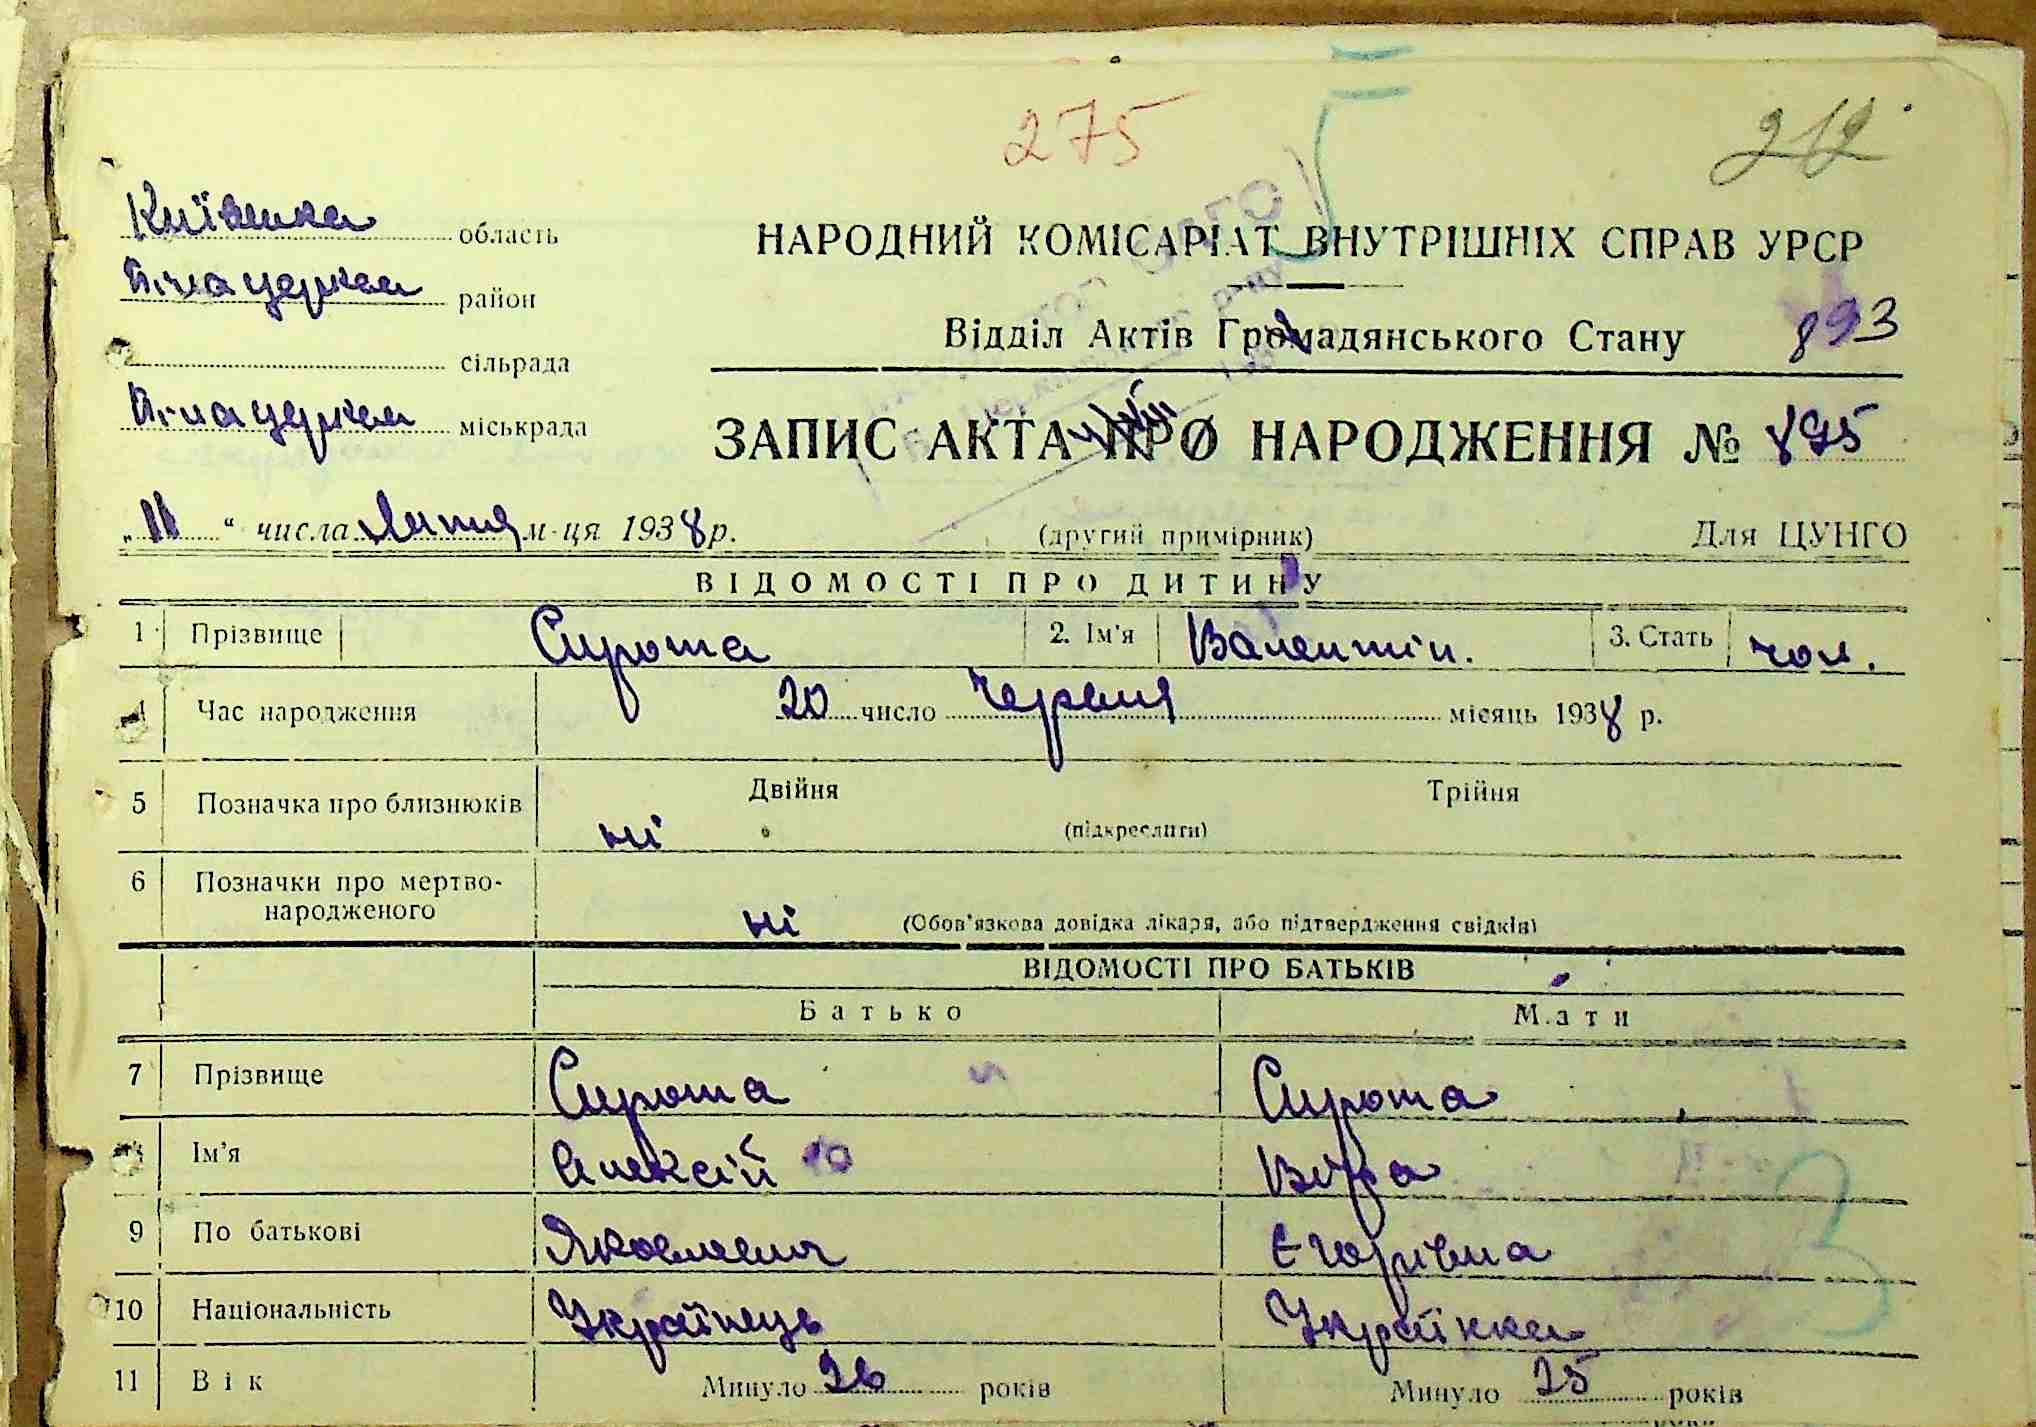 275
212
Київська область
Білацеркам район
сільрада
Білацеркам міськрада
НАРОДНИЙ КОМІСАРІАТ ВНУТРІШНІХ СПРАВ УРСР
Відділ Актів Громадянського Стану 893
ЗАПИС АКТА ПРО НАРОДЖЕННЯ № 895
„11“ числа Липня м-ця 1938 р.
(другий примірник) Для ЦУНГО
ВІДОМОСТІ ПРО ДИТИНУ
1 Прізвище Сирота 2. Ім'я Валентін. 3. Стать чол.
4 Час народження 20 число Червня місяць 1938 р.
5 Позначка про близнюків Двійня Трійня
ні (підкреслити)
6 Позначки про мертво-
народженого ні (Обов'язкова довідка лікаря, або підтвердження свідків)
ВІДОМОСТІ ПРО БАТЬКІВ
Батько Мати
7 Прізвище Сирота Сирота
8 Ім'я Алексій Віра
9 По батькові Яковлевич Єгорівна
10 Національність Українець Українка
11 Вік Минуло 26 років Минуло 25 років
3